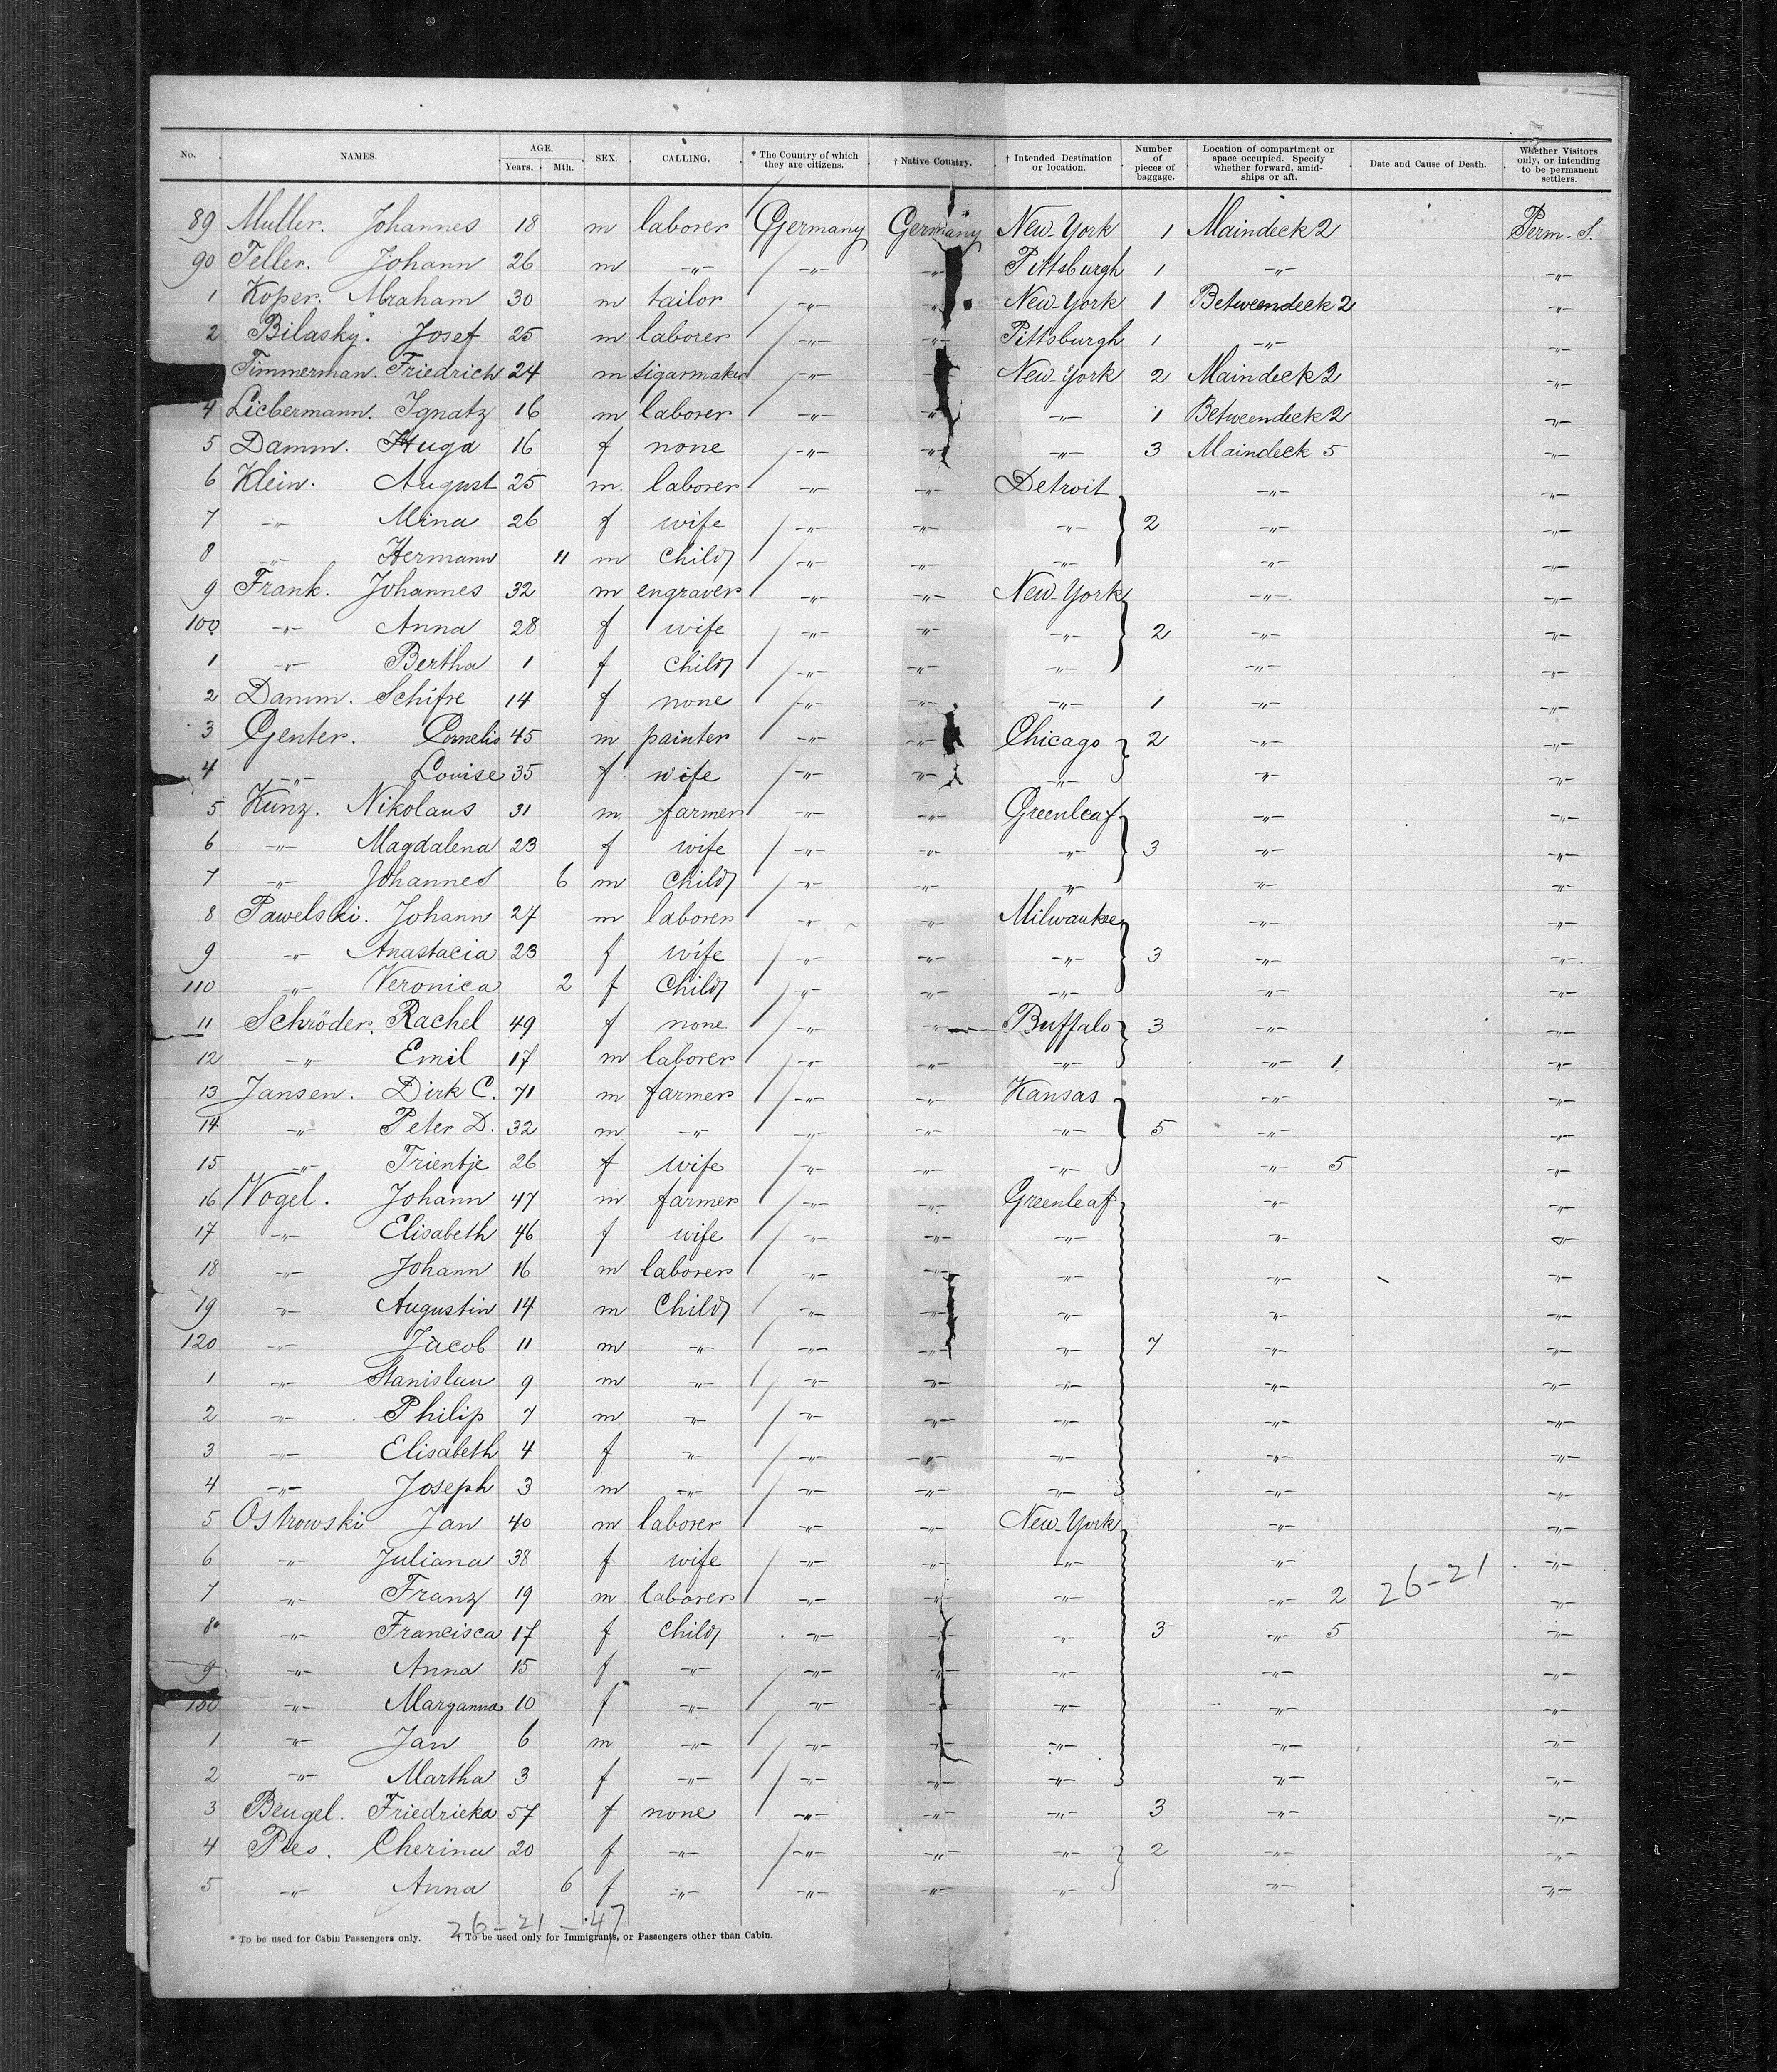 No. NAMES. AGE. Years. Mth. SEX. CALLING. * The Country of which they are citizens. † Native Country. † Intended Destination or location. Number of pieces of baggage. Location of compartment or space occupied. Specify whether forward, amidships or aft. Date and Cause of Death. Whether Visitors only, or intending to be permanent settlers.
89 Muller. Johannes 18 m laborer Germany Germany New-York 1 Maindeck 2 Perm. S.
90 Teller. Johann 26 m -"- -"- -"- Pittsburgh 1 -"- -"-
1 Koper. Abraham 30 m tailor -"- -"- New-York 1 Betweendeck 2 -"-
2 Bilasky. Josef 25 m laborer -"- -"- Pittsburgh 1 -"- -"-
Timmerman. Friedrich 24 m sigarmaker -"- New-York 2 Maindeck 2 -"-
4 Liebermann. Ignatz 16 m laborer -"- -"- -"- 1 Betweendeck 2 -"-
5 Damm. Huga 16 f none -"- -"- -"- 3 Maindeck 5 -"-
6 Klein. August 25 m. laborer -"- -"- Detroit -"- -"-
7 -"- Mina 26 f wife -"- -"- -"- 2 -"- -"-
8 -"- Hermann 11 m Child -"- -"- -"- -"- -"-
9 Frank. Johannes 32 m engraver -"- -"- New-York -"- -"-
100 -"- Anna 28 f wife -"- -"- -"- 2 -"- -"-
1 -"- Bertha 1 f child -"- -"- -"- -"- -"-
2 Damm. Schifre 14 f none -"- -"- -"- 1 -"- -"-
3 Genter. Cornelis 45 m painter -"- -"- Chicago 2 -"- -"-
4 -"- Louise 35 f wife -"- -"- -"- -"- -"-
5 Kunz. Nikolaus 31 m. farmer -"- -"- Greenleaf -"- -"-
6 -"- Magdalena 23 f wife -"- -"- -"- 3 -"- -"-
7 -"- Johannes 6 m Child -"- -"- -"- -"- -"-
8 Pawelski. Johann 27 m laborer -"- -"- Milwaukee -"- -"-
9 -"- Anastacia 23 f wife -"- -"- -"- 3 -"- -"-
110 -"- Veronica 2 f Child -"- -"- -"- -"- -"-
11 Schröder. Rachel 49 f none -"- -"- Buffalo 3 -"- -"-
12 -"- Emil 17 m laborer -"- -"- -"- -"- 1 -"-
13 Jansen. Dirk C. 71 m farmer -"- -"- Kansas -"- -"-
14 -"- Peter D. 32 m -"- -"- -"- -"- 5 -"- -"-
15 -"- Trientje 26 f wife -"- -"- -"- -"- 5 -"-
16 Vogel. Johann 47 m farmer -"- -"- Greenleaf -"- -"-
17 -"- Elisabeth 46 f wife -"- -"- -"- -"- -"-
18 -"- Johann 16 m laborer -"- -"- -"- -"- -"-
19 -"- Augustin 14 m Child -"- -"- -"- -"- -"-
120 -"- Jacob 11 m -"- -"- -"- -"- 7 -"- -"-
1 -"- 9 m -"- -"- -"- -"- -"- -"-
2 -"- Philip 7 m -"- -"- -"- -"- -"- -"-
3 -"- Elisabeth 4 f -"- -"- -"- -"- -"- -"-
4 -"- Joseph 3 m -"- -"- -"- -"- -"- -"-
5 Ostrowski Jan 40 m laborer -"- -"- New-York -"- -"-
6 -"- Juliana 38 f wife -"- -"- -"- -"- -"-
7 -"- Franz 19 m laborer -"- -"- -"- -"- 2 26-21 -"-
8 -"- Francisca 17 f Child -"- -"- -"- 3 -"- 5 -"-
9 -"- Anna 15 f -"- -"- -"- -"- -"- -"-
130 -"- Maryanna 10 f -"- -"- -"- -"- -"- -"-
1 -"- Jan 6 m -"- -"- -"- -"- -"- -"-
2 -"- Martha 3 f -"- -"- -"- -"- -"- -"-
3 Beugel. Friedrieka 57 f none -"- -"- -"- 3 -"- -"-
4 Pres. Cherina 20 f -"- -"- -"- -"- 2 -"- -"-
5 -"- Anna 6 f -"- -"- -"- -"- -"- -"-
26-21-47
* To be used for Cabin Passengers only. † To be used only for Immigrants, or Passengers other than Cabin.